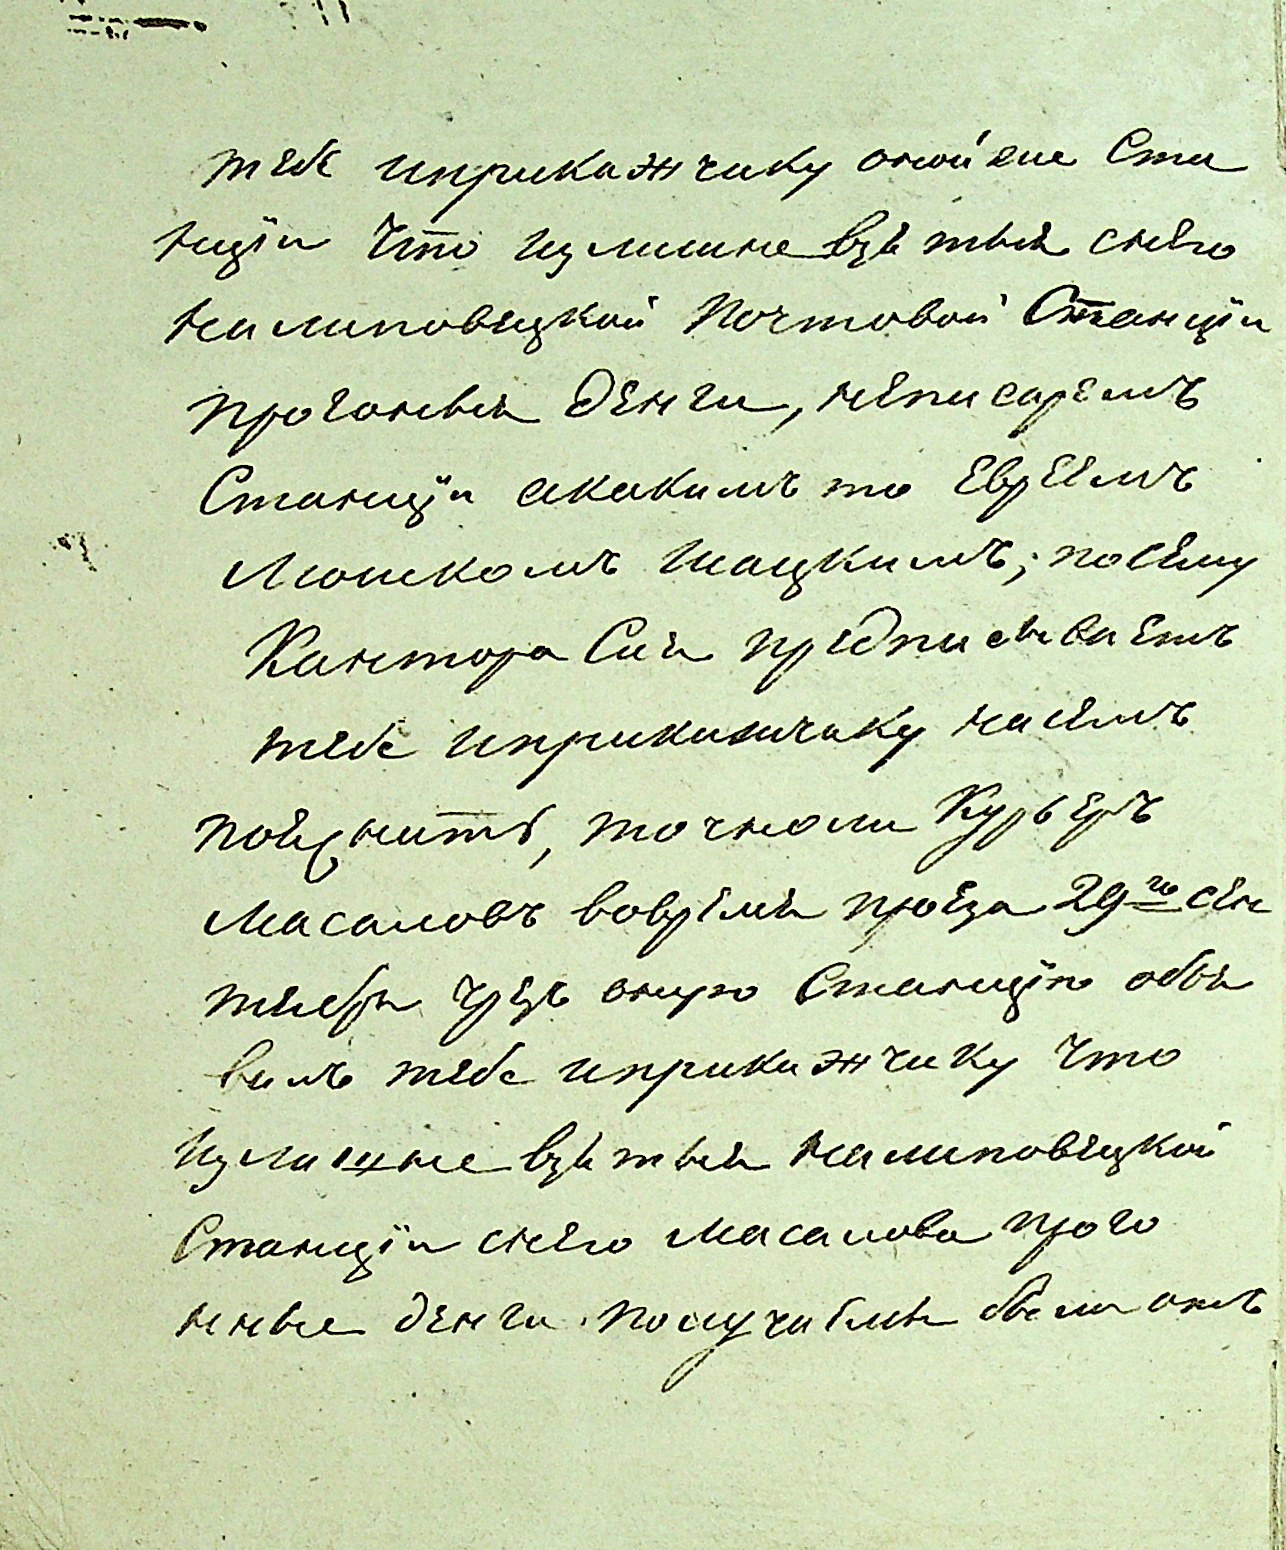 тебе иприкажчику оной же Ста
нціи что излишне взятыя снего
налиповецкой Почтовой Станціи
прогоныя денги, неписаремъ
Станціи акакимъ то Евреемъ
Мошкомъ Шацкимъ; посему
Кантора Сия предписываетъ
тебе иприкажчику насемъ
поясънить, точноли Курьеръ
Масаловъ вовремя проезда 29го сен
тября чрезъ оную Станцію объя
вилъ тебе иприкажчику что
излишне взятыя налиповецкой
Станціи снего Масалова прого
нные денги получаемы были онъ